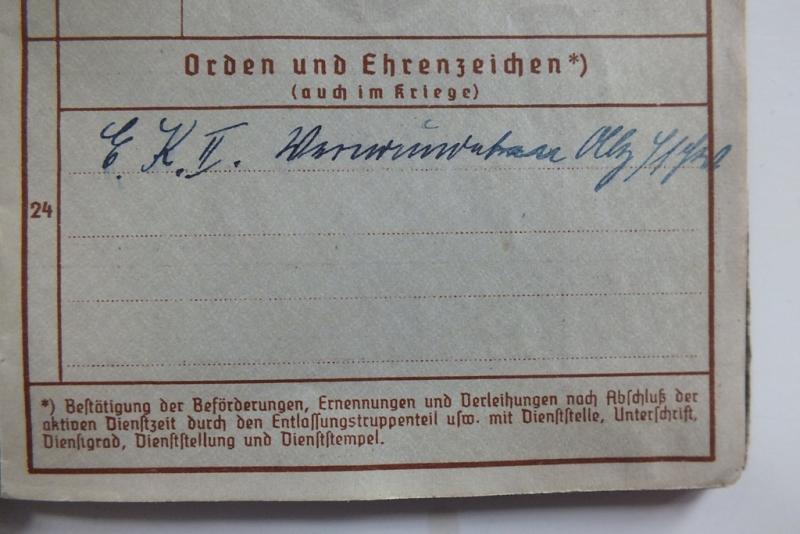 Orden und Ehrenzeichen*)
(auch im Kriege)
E. K. II. Verwundeten Abz
24
*) Bestätigung der Beförderungen, Ernennungen und Verleihungen nach Abschluß der
aktiven Dienstzeit durch den Entlassungstruppenteil usw. mit Dienststelle, Unterschrift,
Dienstgrad, Dienststellung und Dienststempel.